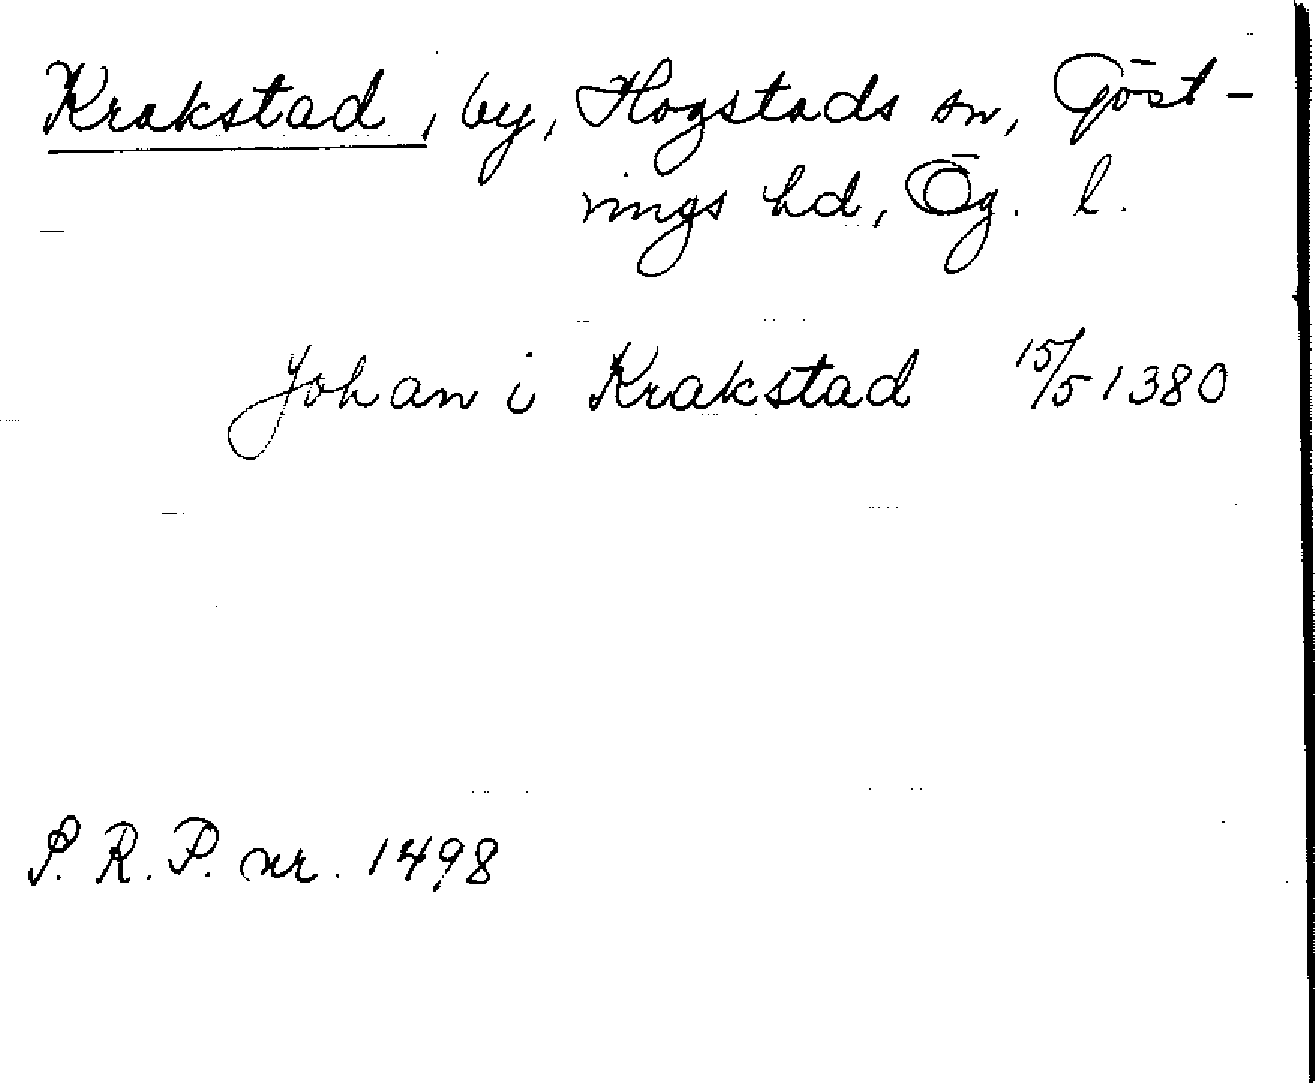 Krakstad, by, Hogstads sn, Göst-
rings hd, Ög. l.
Johan i Krakstad 15/5 1380
S. R. P. nr. 1498